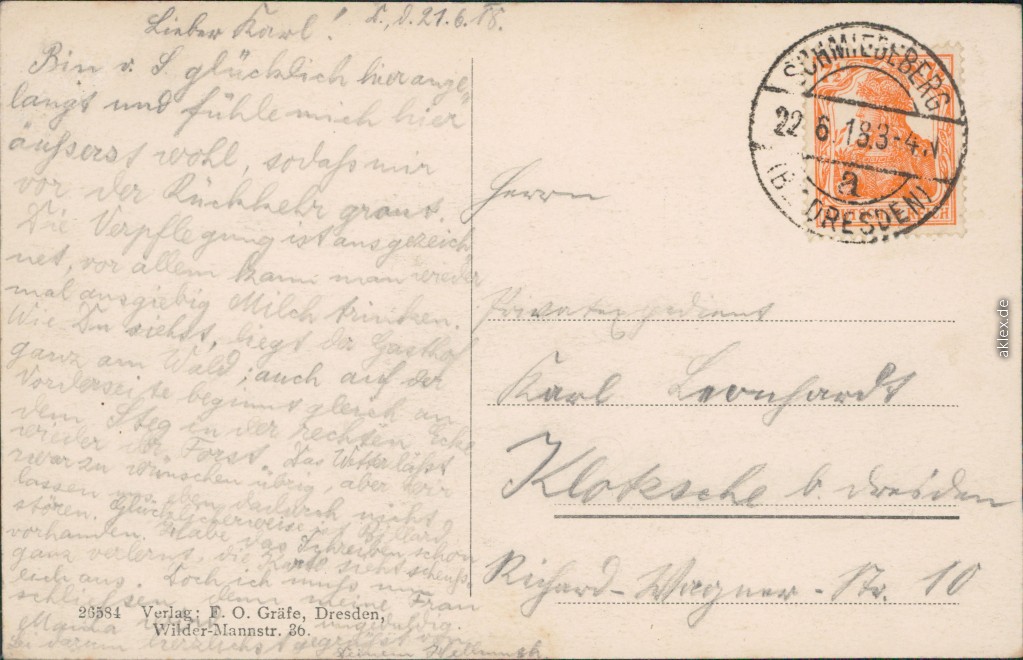 Lieber Karl! d. 21.6.18.
Bin v. S. glücklich hier ange„
langt und fühle mich hier
äußerst wohl, sodaß mir
vor der Rückkehr graut.
Die Verpflegung ist ausgezeich„
net, vor allem kann man wieder
mal ausgiebig Milch trinken.
Wie Du siehst, liegt der Gasthof
ganz am Wald; auch auf der
Vorderseite beginnt gleich an
dem Steg in der rechten Ecke
wieder der Forst. Das Wetter läßt
zwar zu wünschen übrig, aber wir
lassen uns eben dadurch nicht
stören. Glücklicherweise ist Billard
vorhanden. Habe das Schreiben schon
ganz verlernt, die Karte sieht scheuß„
lich aus. Doch ich muß nun
schließen, denn meine Frau
wird ungeduldig.
herzlichst gegrüßt von
Deinem
26584 Verlag: F. O. Gräfe, Dresden,
Wilder-Mannstr. 36.
SCHMIEDEBERG
22.6.18.3-4.N
a
(BZ. DRESDEN)
Herrn
Privatexpedient
Karl Leonhardt
Klotzsche b. Dresden
Richard-Wagner-Str. 10
aklex.de